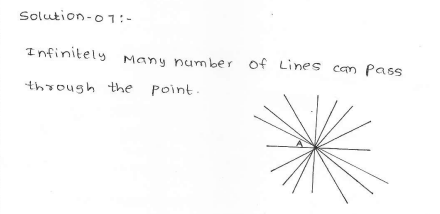 Solution-07:-
Infinitely Many number of Lines can Pass
through the point.
A